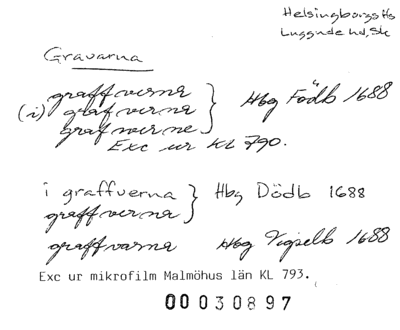 Helsingborgs Hs
Luggude hd, Sk
Gravarna
graffverna
(i) grafverna
grafwerne
} Hbg Födb 1688
Exc ur KL 790.
i graffverna
graffverna
} Hbg Dödb 1688
graffvarna Hbg Vigselb 1688
Exc ur mikrofilm Malmöhus län KL 793.
00030897